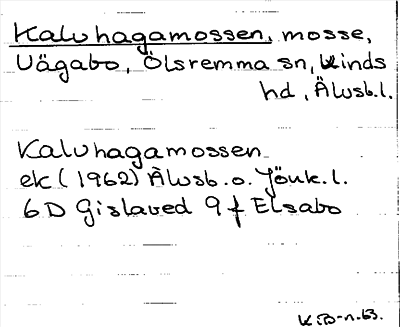 Kalvhagamossen, mosse,
Vägabo, Ölsremma sn, Kinds
hd, Älvsb.l.
Kalvhagamossen
ek (1962) Älvsb. o. Jönk. l.
6D Gislaved 9 f Elsabo